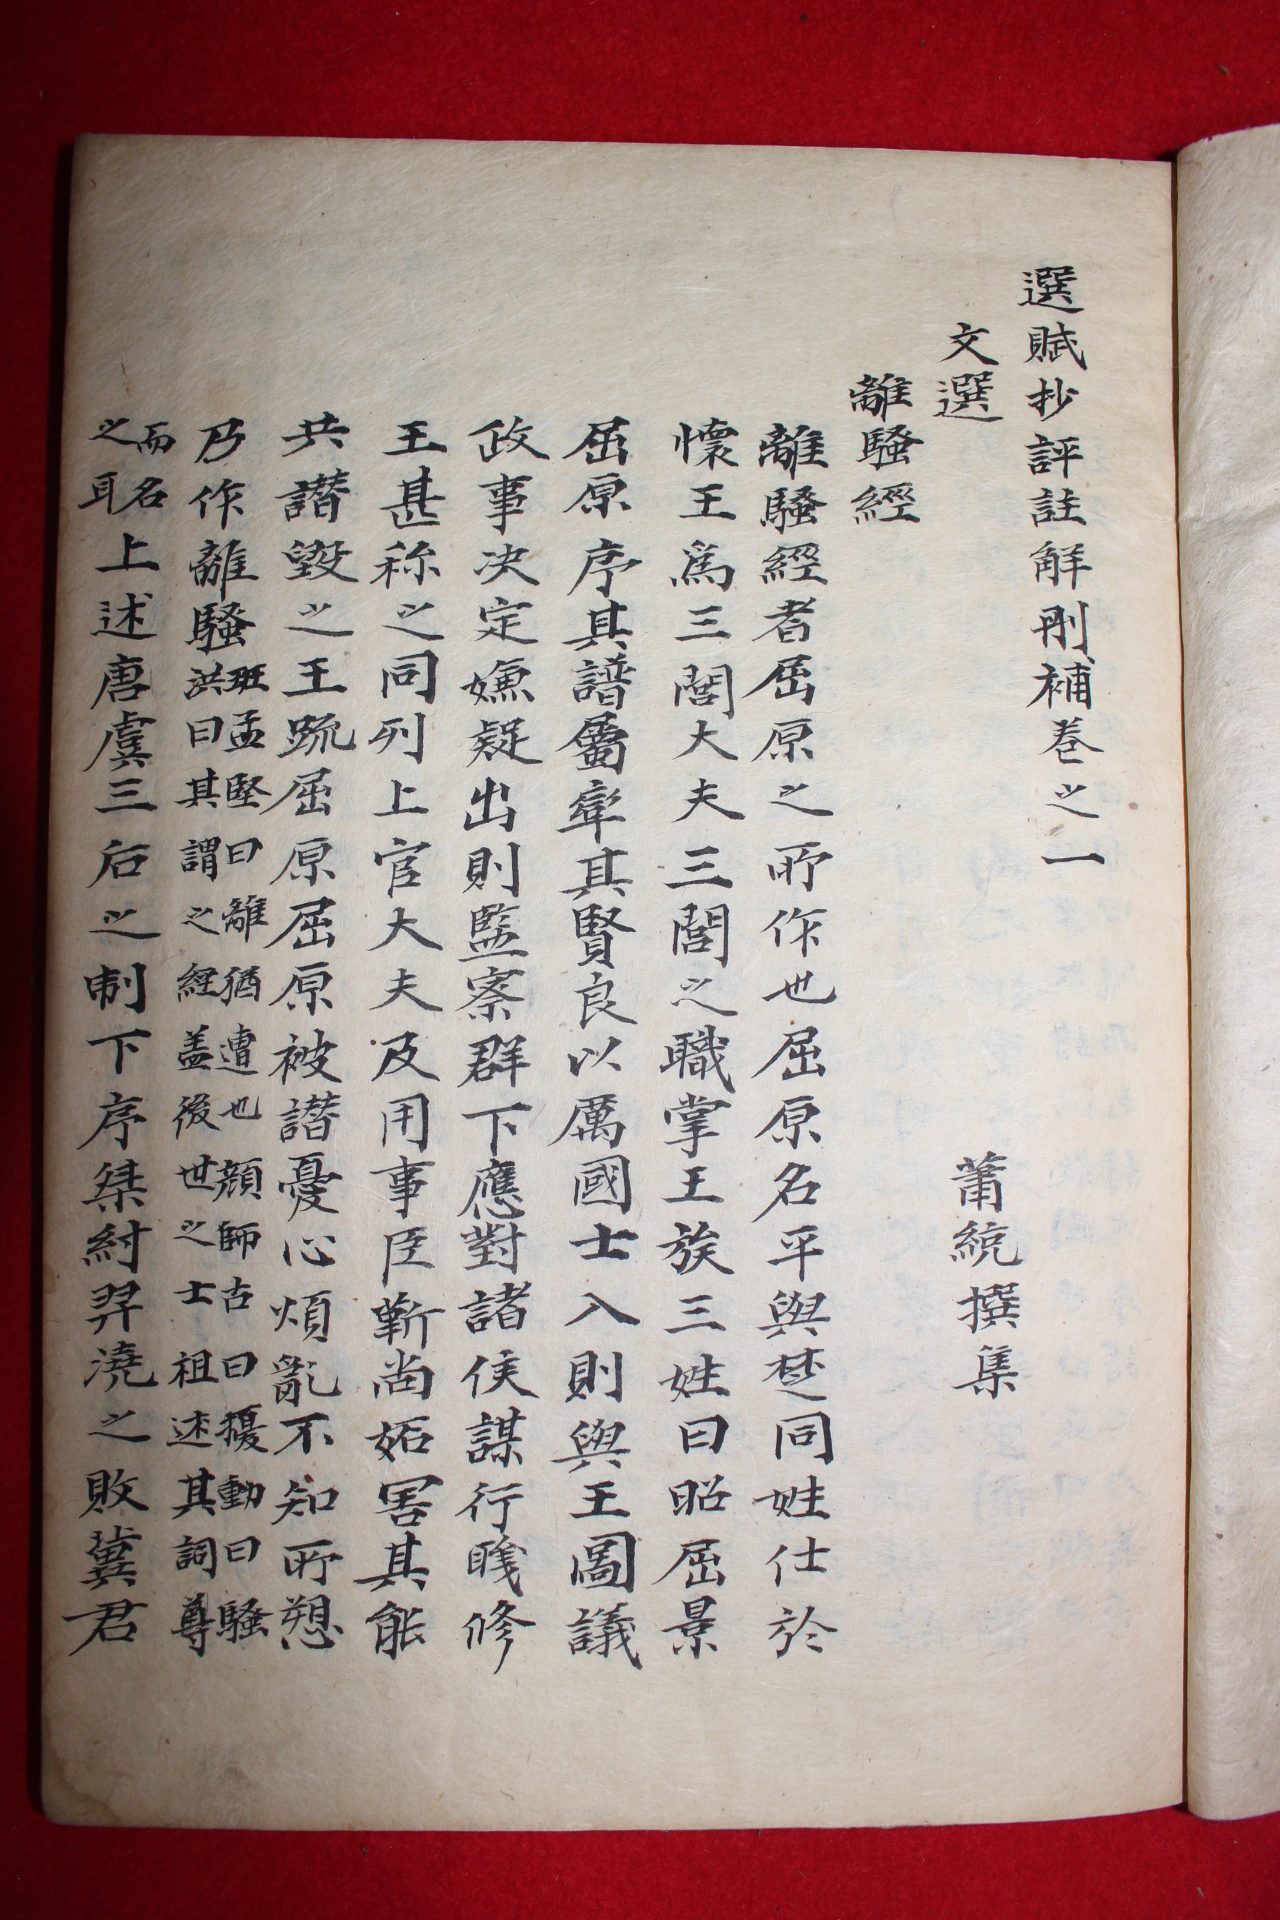 選賦抄評註解刪補卷之一
文選 蕭統撰集
離騷經
離騷經者屈原之所作也屈原名平與楚同姓仕於
懷王爲三閭大夫三閭之職掌王族三姓曰昭屈景
屈原序其譜屬率其賢良以厲國士入則與王圖議
政事决定嫌疑出則監察群下應對諸侯謀行職修
王甚称之同列上官大夫及用事臣靳尚妬害其能
共譖毀之王疏屈原屈原被譖憂心煩亂不知所愬
乃作離騷班孟堅曰離猶遭也顔師古曰擾動曰騷
洪曰其謂之經盖後世之士祖述其詞尊
而名
之耳上述唐虞三后之制下序桀紂羿澆之敗冀君